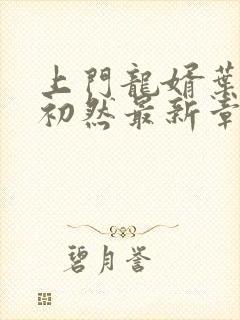 上門龍婿葉
初然最新章
碧月誉